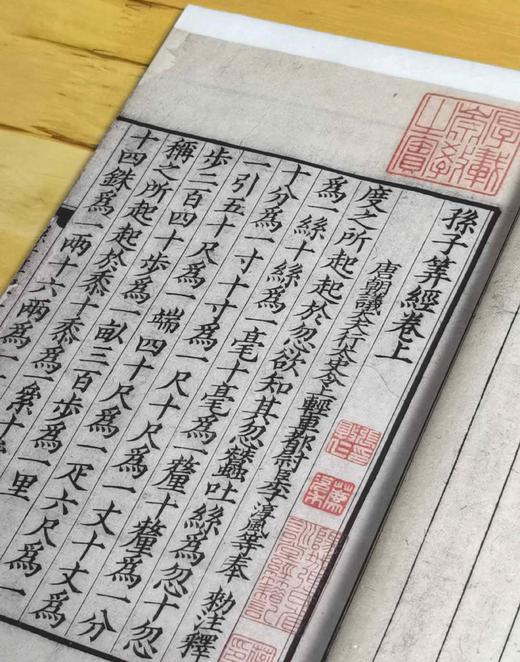 孫子筭經卷上
唐朝議大夫行太史令上輕車都尉臣李淳風等奉 勑注釋
度之所起起於忽欲知其忽蠶吐絲爲忽十忽
爲一絲十絲爲一毫十毫爲一釐十釐爲一分
十分爲一寸十寸爲一尺十尺爲一丈十丈爲
一引五十尺爲一端四十尺爲一疋六尺爲一
步二百四十步爲一畝三百步爲一里
稱之所起起於黍十黍爲一絫十
十四銖爲一兩十六兩爲一